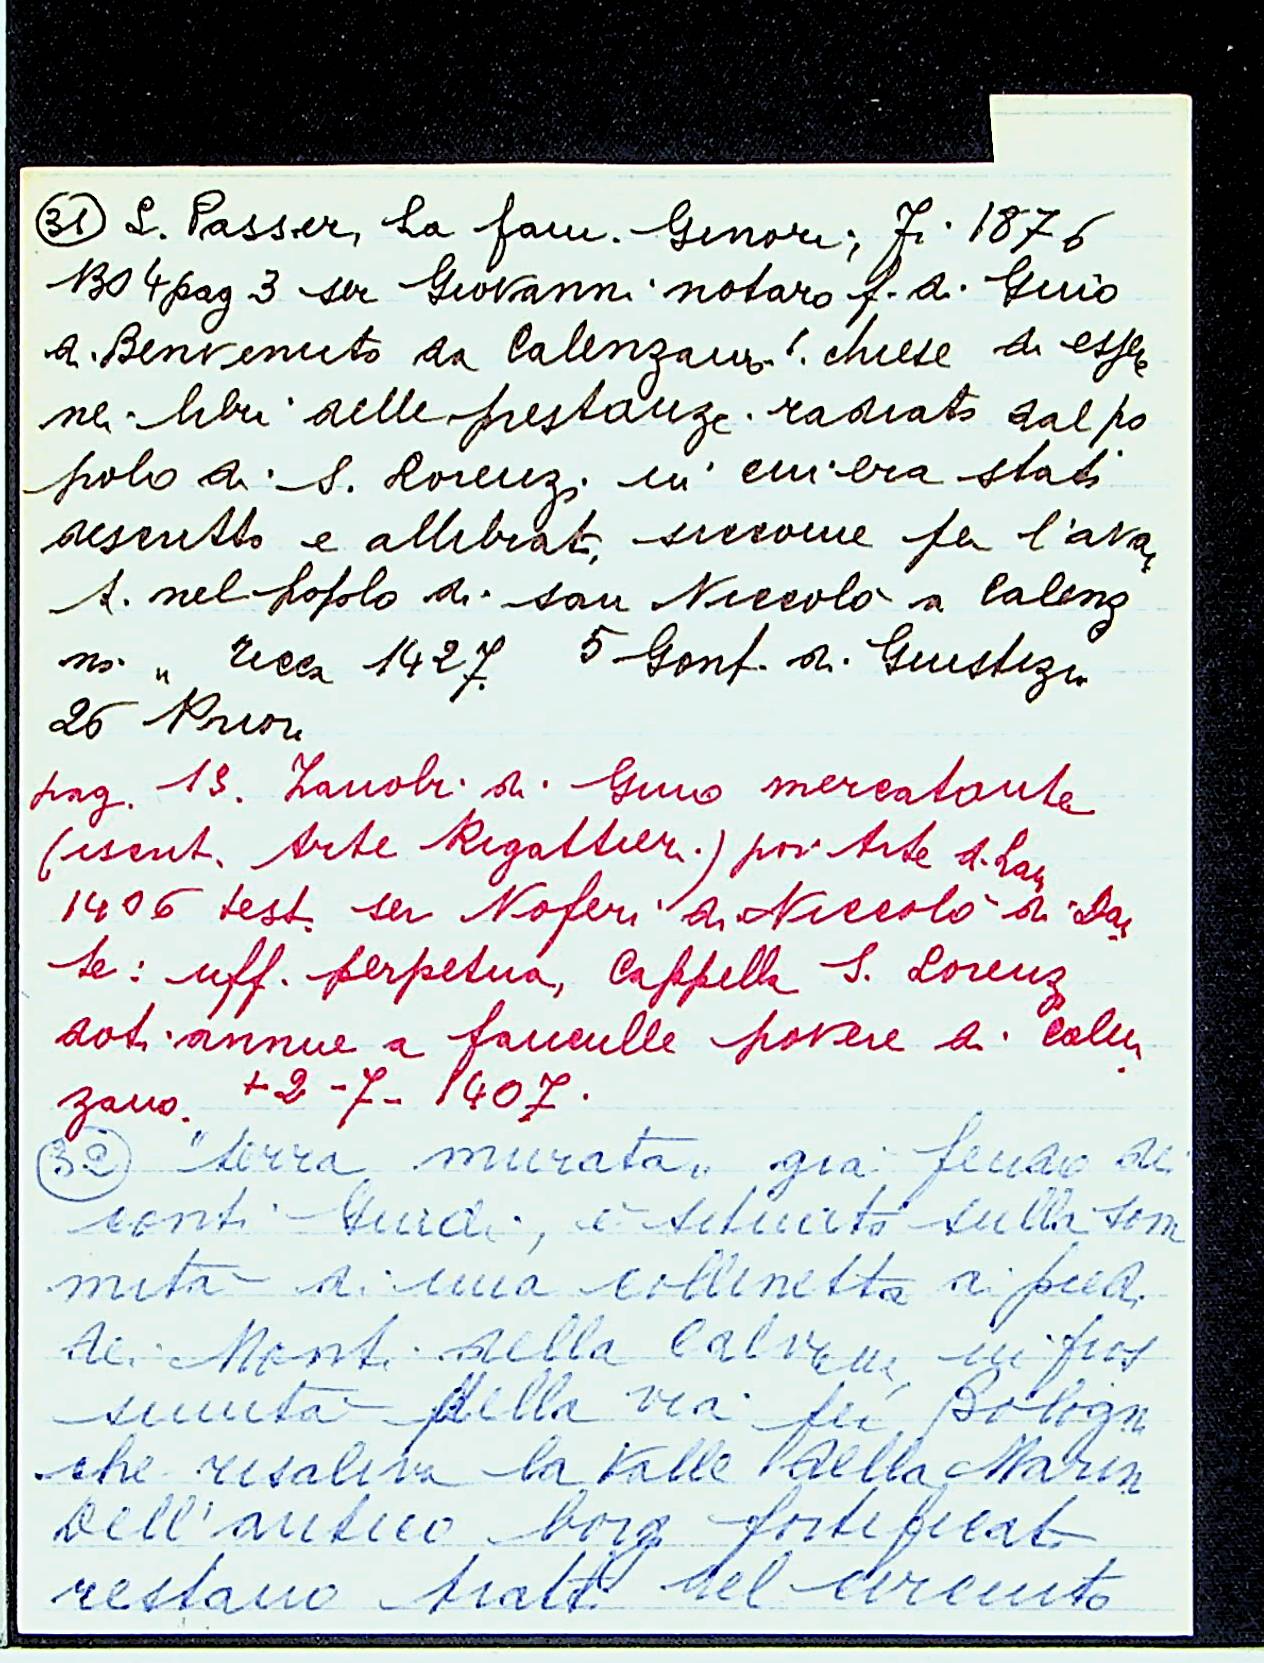 (31) L. Passer, La fam. Ginori, Fi. 1876
pag 3 ser Giovanni notaro f. di Gino
di Benvenuto da Calenzano chiese di essere
nei libri delle prestanze radiato dal po
polo di S. Lorenzo in cui era stato
descritto e allibrato, siccome per l'avan
ti nel popolo di san Niccolò a Calenz
no " 1427. 5 Gonf. di Giustizia
26 Priori
pag. 13. Zanobi di Gino mercatante
(iscrit. Arte Rigattieri) poi Arte d. Lan
1406 test. ser Noferi di Niccolò di Dan
te: uff. perpetua, Cappella S. Lorenzo
doti annue a fanciulle povere di Calen
zano. +2-7-1407.
(32) "terra murata" già feudo dei
conti Guidi, è situato sulla som
mità di una collinetta ai piedi
dei Monti della Calvana, in pros
simità della via per Bologna
che risaliva la Valle della Marina
Dell'antico borgo fortificato
restano tratti del circuito